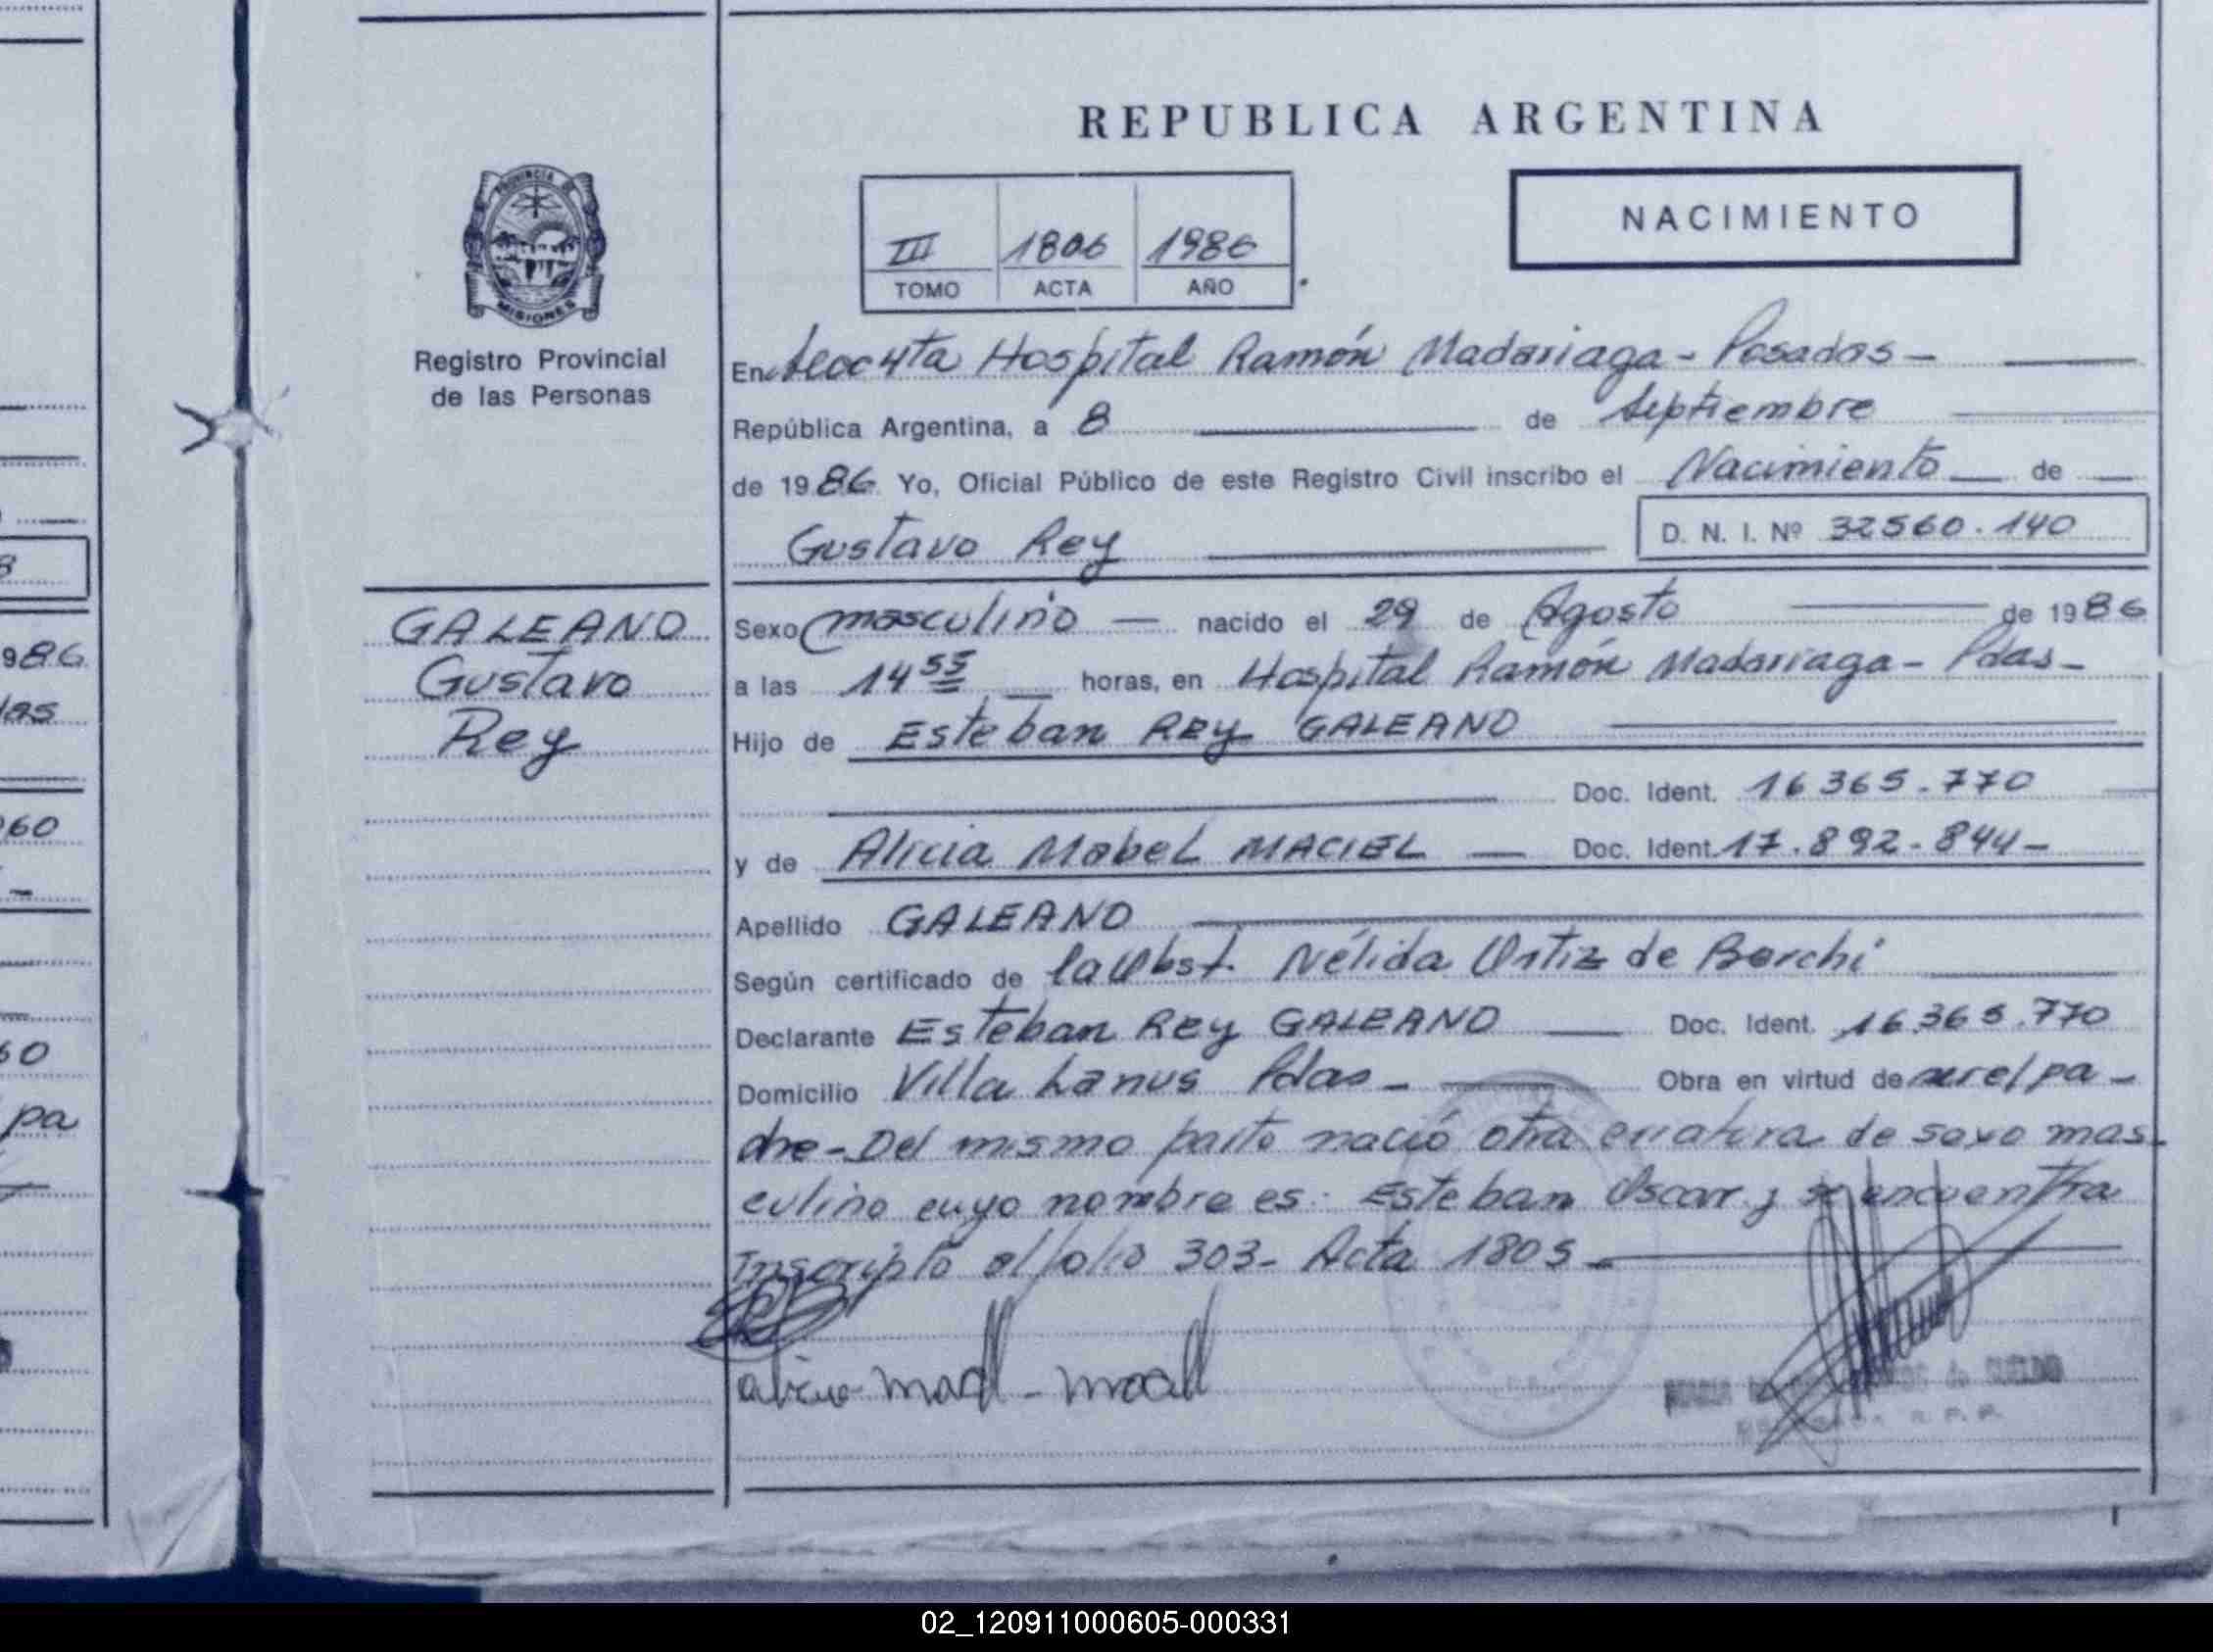 REPUBLICA ARGENTINA
PROVINCIA DE
MISIONES
Registro Provincial
de las Personas
NACIMIENTO
III 1806 1986
TOMO ACTA AÑO
En Hospital Ramón Madariaga - Posadas -
República Argentina, a 8 de Septiembre
de 1986 Yo, Oficial Público de este Registro Civil inscribo el Nacimiento de
Gustavo Rey D. N. I. Nº 32560.140
GALEANO
Gustavo
Rey
Sexo masculino nacido el 29 de Agosto de 1986
a las 14 55 horas, en Hospital Ramón Madariaga - Pdas -
Hijo de Esteban Rey GALEANO
Doc. Ident. 16365.770
y de Alicia Mabel MACIEL Doc. Ident. 17.892.844-
Apellido GALEANO
Según certificado de la Obst. Nélida Ortiz de Borchi
Declarante Esteban Rey GALEANO Doc. Ident. 16.365.770
Domicilio Villa Lanus Pdas - Obra en virtud de ser el pa-
dre - Del mismo parto nació otra criatura de sexo mas-
culino cuyo nombre es: Esteban Oscar y se encuentra
Inscripto al folio 303 - Acta 1805 -
986
las
060
60
pa
02_120911000605-000331